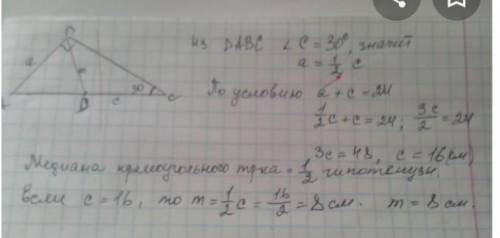 из DABC ∠C = 30°, значит
a = 1/2 c
По условию a + c = 24
1/2 c + c = 24; 3c/2 = 24
3c = 48, c = 16 (см)
Медиана прямоугольного тр-ка = 1/2 гипотенузы.
Если c = 16, то m = 1/2 c = 16/2 = 8 см. m = 8 см.
a
m
30°
c
C